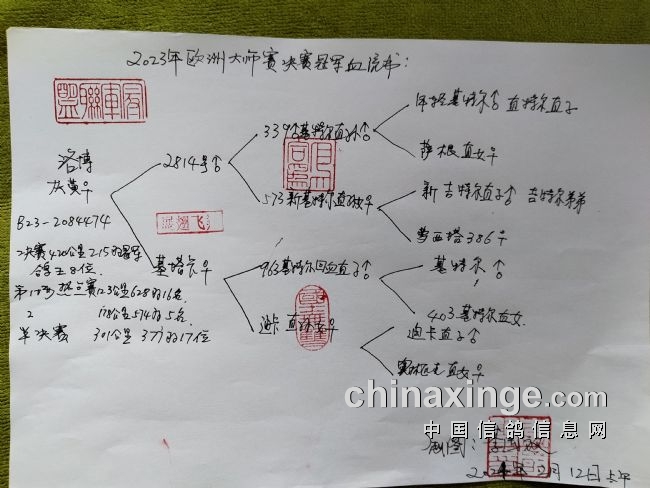 2023年欧洲大师赛决赛冠军血统书:
洛博
灰黄♀
B23-2084474
决赛420公里215羽冠军
鸽王8位.
第1场热点赛123公里628羽16名.
2 178公里574羽5名.
半决赛 301公里 377羽17位
2814号♂
基塔卡♀
339号基特尔直孙♂
573新基特尔直孙女♀
963基特尔回血直子♂
迪卡直孙女♀
年轻基特尔♂ 直特尔直子
萨根直女♀
新吉特尔直子♂ 吉特尔弟弟
蒙西塔386♀
基特尔♂
403基特尔直女
迪卡直子♂
直女♀
chinaxinge.com
中国信鸽信息网
2024年2月12日上午